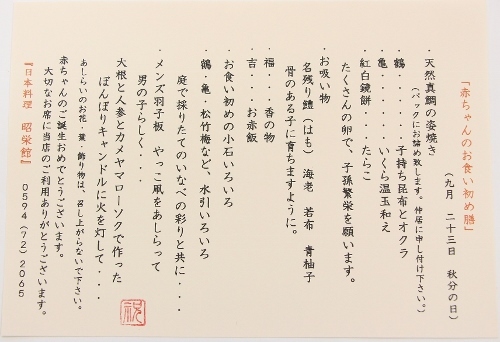 「赤ちゃんのお食い初め膳」
（九月　二十三日　秋分の日）
・天然真鯛の姿焼き
（パックにお詰め致します。仲居に申し付け下さい。）
・鶴・・・・・・・子持ち昆布とオクラ
・亀・・・・・・・いくら温玉和え
・紅白鏡餅・・・たらこ
たくさんの卵で、子孫繁栄を願います。
・お吸い物
名残り鱧（はも）　海老　若布　青柚子
骨のある子に育ちますように。
・福・・・香の物
・吉・・・お赤飯
・お食い初めの小石いろいろ
・鶴・亀・松竹梅など、水引いろいろ
庭で採りたてのいなべの彩りと共に・・・
・メンズ羽子板　やっこ凧をあしらって
男の子らしく・・・
大根と人参とカメヤマローソクで作った
ぼんぼりキャンドルに火を灯して・・・
あしらいのお花・葉・飾り物は、召し上がらないで下さい。
赤ちゃんのご誕生おめでとうございます。
大切なお席に当店のご利用ありがとうございます。
『日本料理　昭栄館』　0594（72）2065
祝